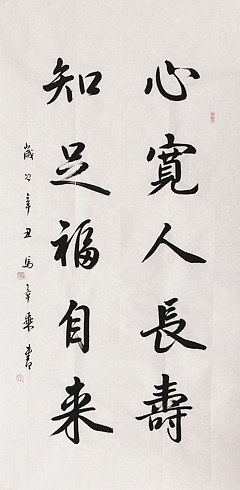 心寬人長壽
知足福自来
歲次辛丑马章乘書